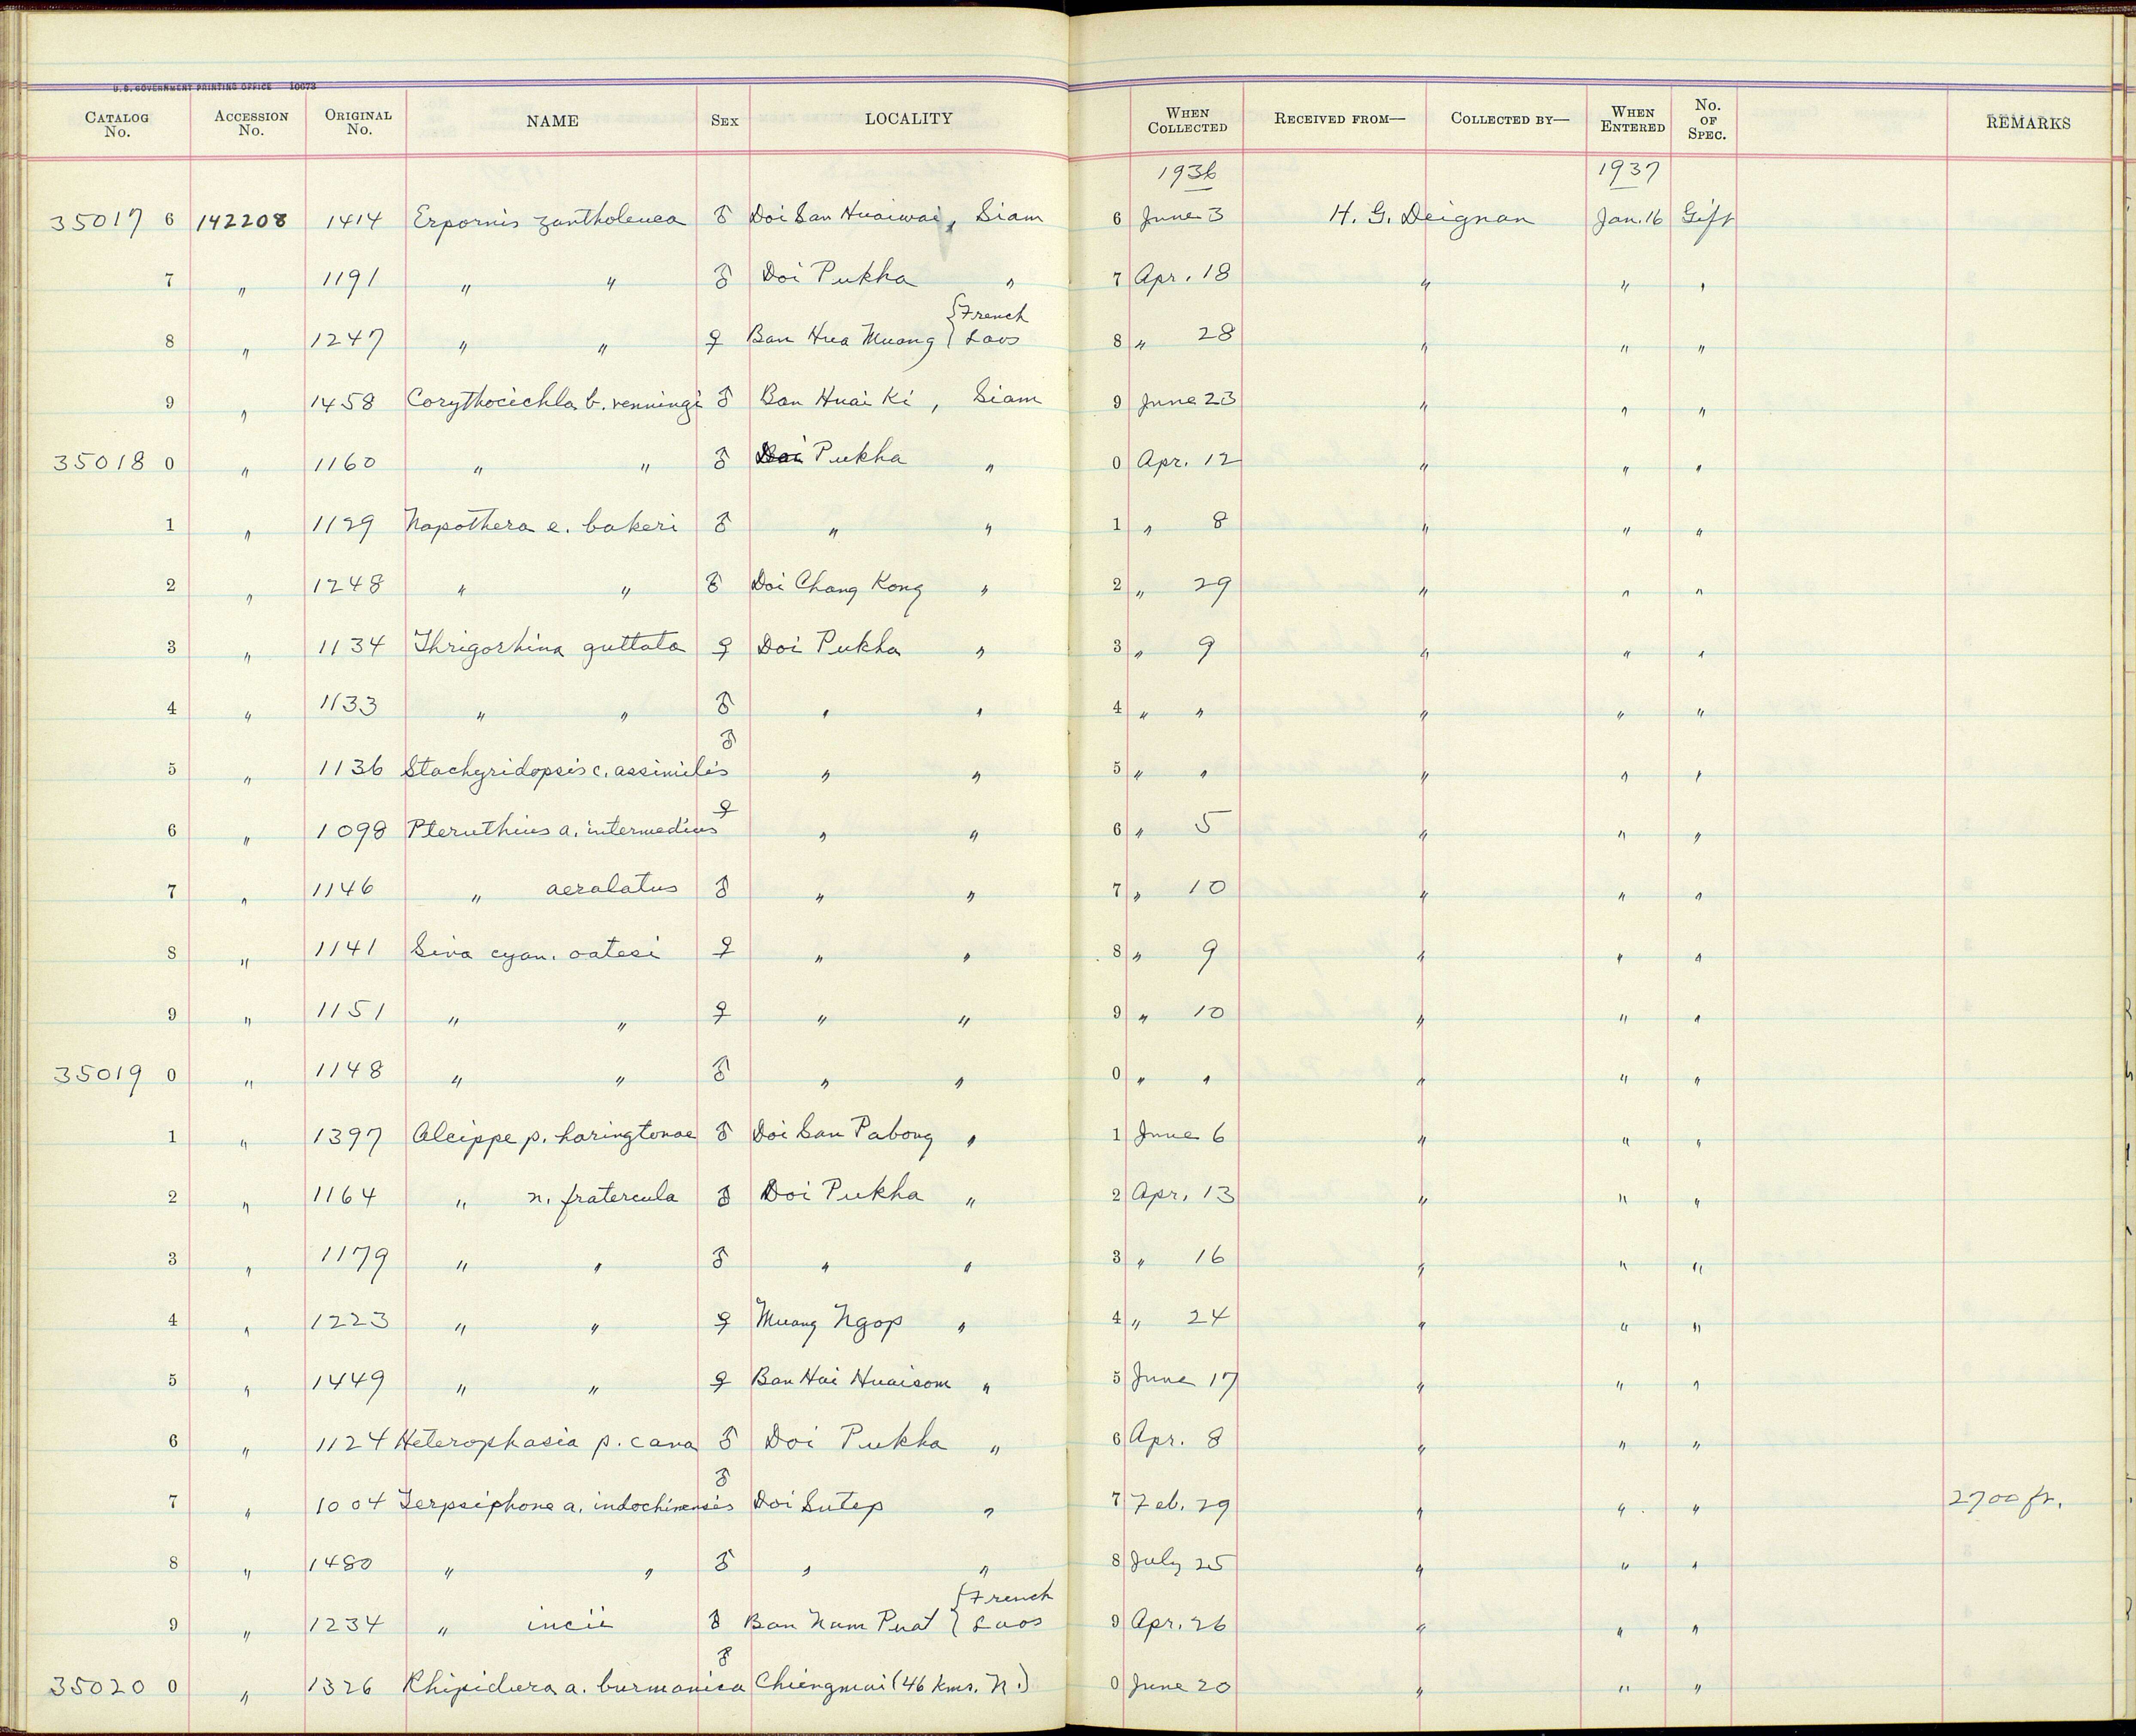 U.S. GOVERNMENT PRINTING OFFICE 10673
CATALOG No. ACCESSION No. ORIGINAL No. NAME SEX LOCALITY WHEN COLLECTED RECEIVED FROM— COLLECTED BY— WHEN ENTERED No. OF SPEC. REMARKS
1936 1937
35017 6 142208 1414 Erpornis zantholeuca ♂ Doi San Huaiwai, Siam 6 June 3 H. G. Deignan Jan. 16 Gift
7 " 1191 " " ♂ Doi Pukha " 7 Apr. 18 " " "
8 " 1247 " " ♀ Ban Hua Muang { French Laos 8 " 28 " " "
9 " 1458 Corythocichla b. venningi ♂ Ban Huai Ki, Siam 9 June 23 " " "
35018 0 " 1160 " " ♂ Doi Pukha " 0 Apr. 12 " " "
1 " 1129 Napothera e. bakeri ♂ " " 1 " 8 " " "
2 " 1248 " " ♂ Doi Chang Kong " 2 " 29 " " "
3 " 1134 Thrigorhina guttata ♀ Doi Pukha " 3 " 9 " " "
4 " 1133 " " ♂ " " 4 " " " " "
5 " 1136 Stachyridopsis c. assimilis ♂ " " 5 " " " " "
6 " 1098 Pteruthius a. intermedius ♀ " " 6 " 5 " " "
7 " 1146 " aeralatus ♂ " " 7 " 10 " " "
8 " 1141 Siva cyan. oatesi ♀ " " 8 " 9 " " "
9 " 1151 " " ♀ " " 9 " 10 " " "
35019 0 " 1148 " " ♂ " " 0 " " " " "
1 " 1397 Alcippe p. haringtonae ♂ Doi San Pabong " 1 June 6 " " "
2 " 1164 " n. fratercula ♂ Doi Pukha " 2 Apr. 13 " " "
3 " 1179 " " ♂ " " 3 " 16 " " "
4 " 1223 " " ♀ Muang Ngop " 4 " 24 " " "
5 " 1449 " " ♀ Ban Hai Huaisom " 5 June 17 " " "
6 " 1124 Heterophasia p. cana ♂ Doi Pukha " 6 Apr. 8 " " "
7 " 1004 Terpsiphone a. indochinensis ♂ Doi Sutep " 7 Feb. 29 " " " 2700 ft.
8 " 1480 " " ♂ " " 8 July 25 " " "
9 " 1234 " incii ♂ Ban Nam Puat { French Laos 9 Apr. 26 " " "
35020 0 " 1326 Rhipidura a. burmanica ♂ Chiengmai (46 kms. N.) 0 June 20 " " "